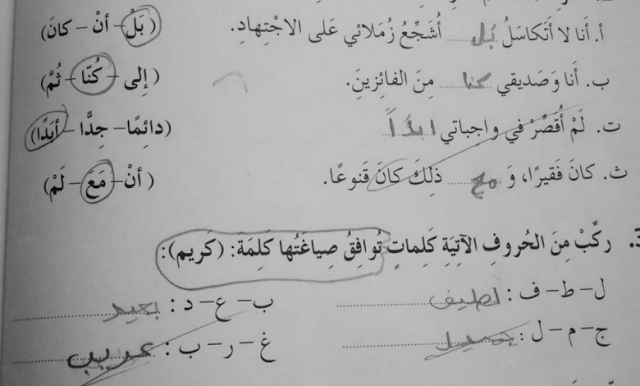 أ. أَنا لا أَتَكاسَلُ بل أُشَجِّعُ زُمَلائي عَلى الاجْتِهادِ. (بَلْ – أنْ – كانَ)
ب. أَنا وَصَديقي كنا مِنَ الفائِزينَ. (إلى – كُنّا – ثُمَّ)
ت. لَمْ أُقَصِّرْ في واجِباتي ابداً (دائِمًا – جِدًّا – أَبَدًا)
ث. كانَ فَقيرًا، وَ مع ذلِكَ كانَ قَنوعًا. (أنْ – مَعَ – لَمْ)
3. رَكِّبْ مِنَ الحُروفِ الآتِيَةِ كَلِماتٍ تُوافِقُ صِياغَتُها كَلِمَةَ: (كَريم):
ل – ط – ف : لطيف ب – ع – د : بعيد
ج – م – ل : جميل غ – ر – ب : غريب